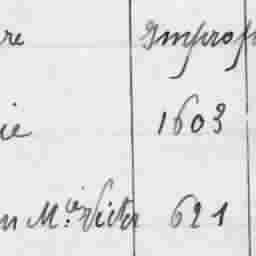 re Improp
ie 1603
n M.ie Victor 621